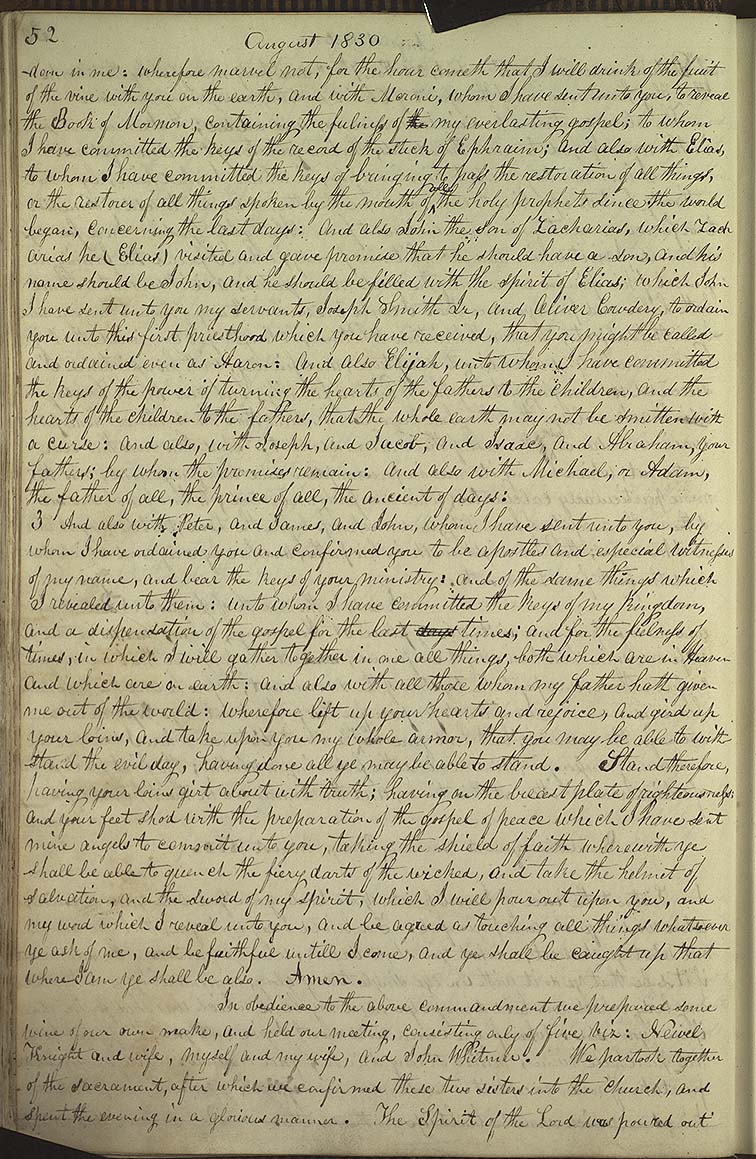 52
August 1830
dom in me: wherefore marvel not, for the hour cometh that I will drink of the fruit
of the vine with you on the earth, and with Moroni, whom I have sent unto you, to reveal
the Book of Mormon, containing the fulness of the my everlasting gospel; to whom
I have committed the keys of the record of the stick of Ephraim; And also with Elias,
to whom I have committed the keys of bringing to pass the restoration of all things,
or the restorer of all things spoken by the mouth of all the holy prophets since the world
began, concerning the last days: And also John the son of Zacharias, which Zach
arias he (Elias) visited and gave promise that he should have a son, and his
name should be John, and he should be filled with the spirit of Elias; which John
I have sent unto you my servants, Joseph Smith Jr, and Oliver Cowdery, to ordain
you unto this first priesthood which you have received, that you might be called
and ordained even as Aaron: And also Elijah, unto whom I have committed
the keys of the power of turning the hearts of the fathers to the children, and the
hearts of the children to the fathers, that the whole earth may not be smitten with
a curse: and also, with Joseph, and Jacob, and Isaac, and Abraham, your
fathers; by whom the promises remain: and also with Michael, or Adam,
the father of all, the prince of all, the ancient of days:
3 And also with Peter, and James, and John, whom I have sent unto you, by
whom I have ordained you and confirmed you to be apostles and especial witnesses
of my name, and bear the keys of your ministry: and of the same things which
I revealed unto them: unto whom I have committed the keys of my kingdom,
and a dispensation of the gospel for the last days times; and for the fulness of
times, in which I will gather together in one all things, both which are in Heaven
and which are on earth: and also with all those whom my father hath given
me out of the world: wherefore lift up your hearts and rejoice, and gird up
your loins, and take upon you my whole armor, that you may be able to with
stand the evil day, having done all ye may be able to stand. Stand therefore,
having your loins girt about with truth; having on the breast plate of righteousness;
and your feet shod with the preparation of the gospel of peace which I have sent
mine angels to commit unto you, taking the shield of faith wherewith ye
shall be able to quench the fiery darts of the wicked, and take the helmet of
salvation, and the sword of my spirit, which I will pour out upon you, and
my word which I reveal unto you, and be agreed as touching all things whatsoever
ye ask of me, and be faithful untill I come, and ye shall be caught up that
where I am ye shall be also. Amen.
In obedience to the above commandment we prepared some
wine of our own make, and held our meeting, consisting only of five viz: Newel
Knight and wife, myself and my wife, and John Whitmer. We partook together
of the sacrament, after which we confirmed these two sisters into the church, and
spent the evening in a glorious manner. The Spirit of the Lord was poured out